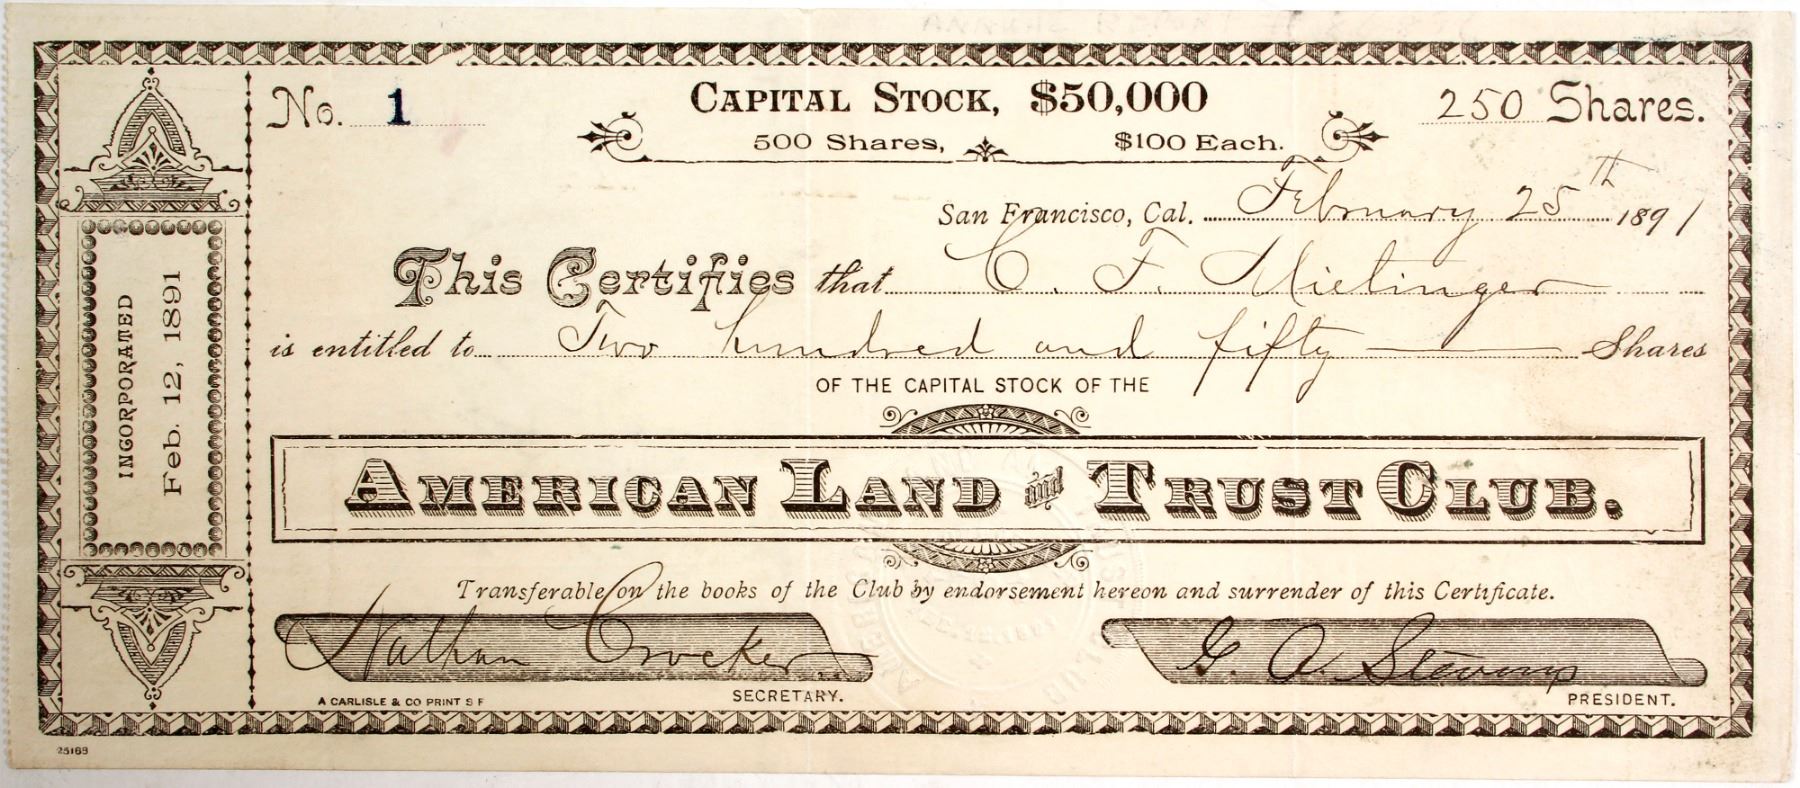 No. 1
CAPITAL STOCK, $50,000
500 Shares, $100 Each.
250 Shares.
San Francisco, Cal. February 25th 1891
This Certifies that C. F. Mietinger
is entitled to Two hundred and fifty Shares
OF THE CAPITAL STOCK OF THE
AMERICAN LAND and TRUST CLUB.
Transferable on the books of the Club by endorsement hereon and surrender of this Certificate.
Nathan Crocker
SECRETARY.
G. A. Stevens
PRESIDENT.
A CARLISLE & CO PRINT S F
INCORPORATED
Feb. 12, 1891
25169